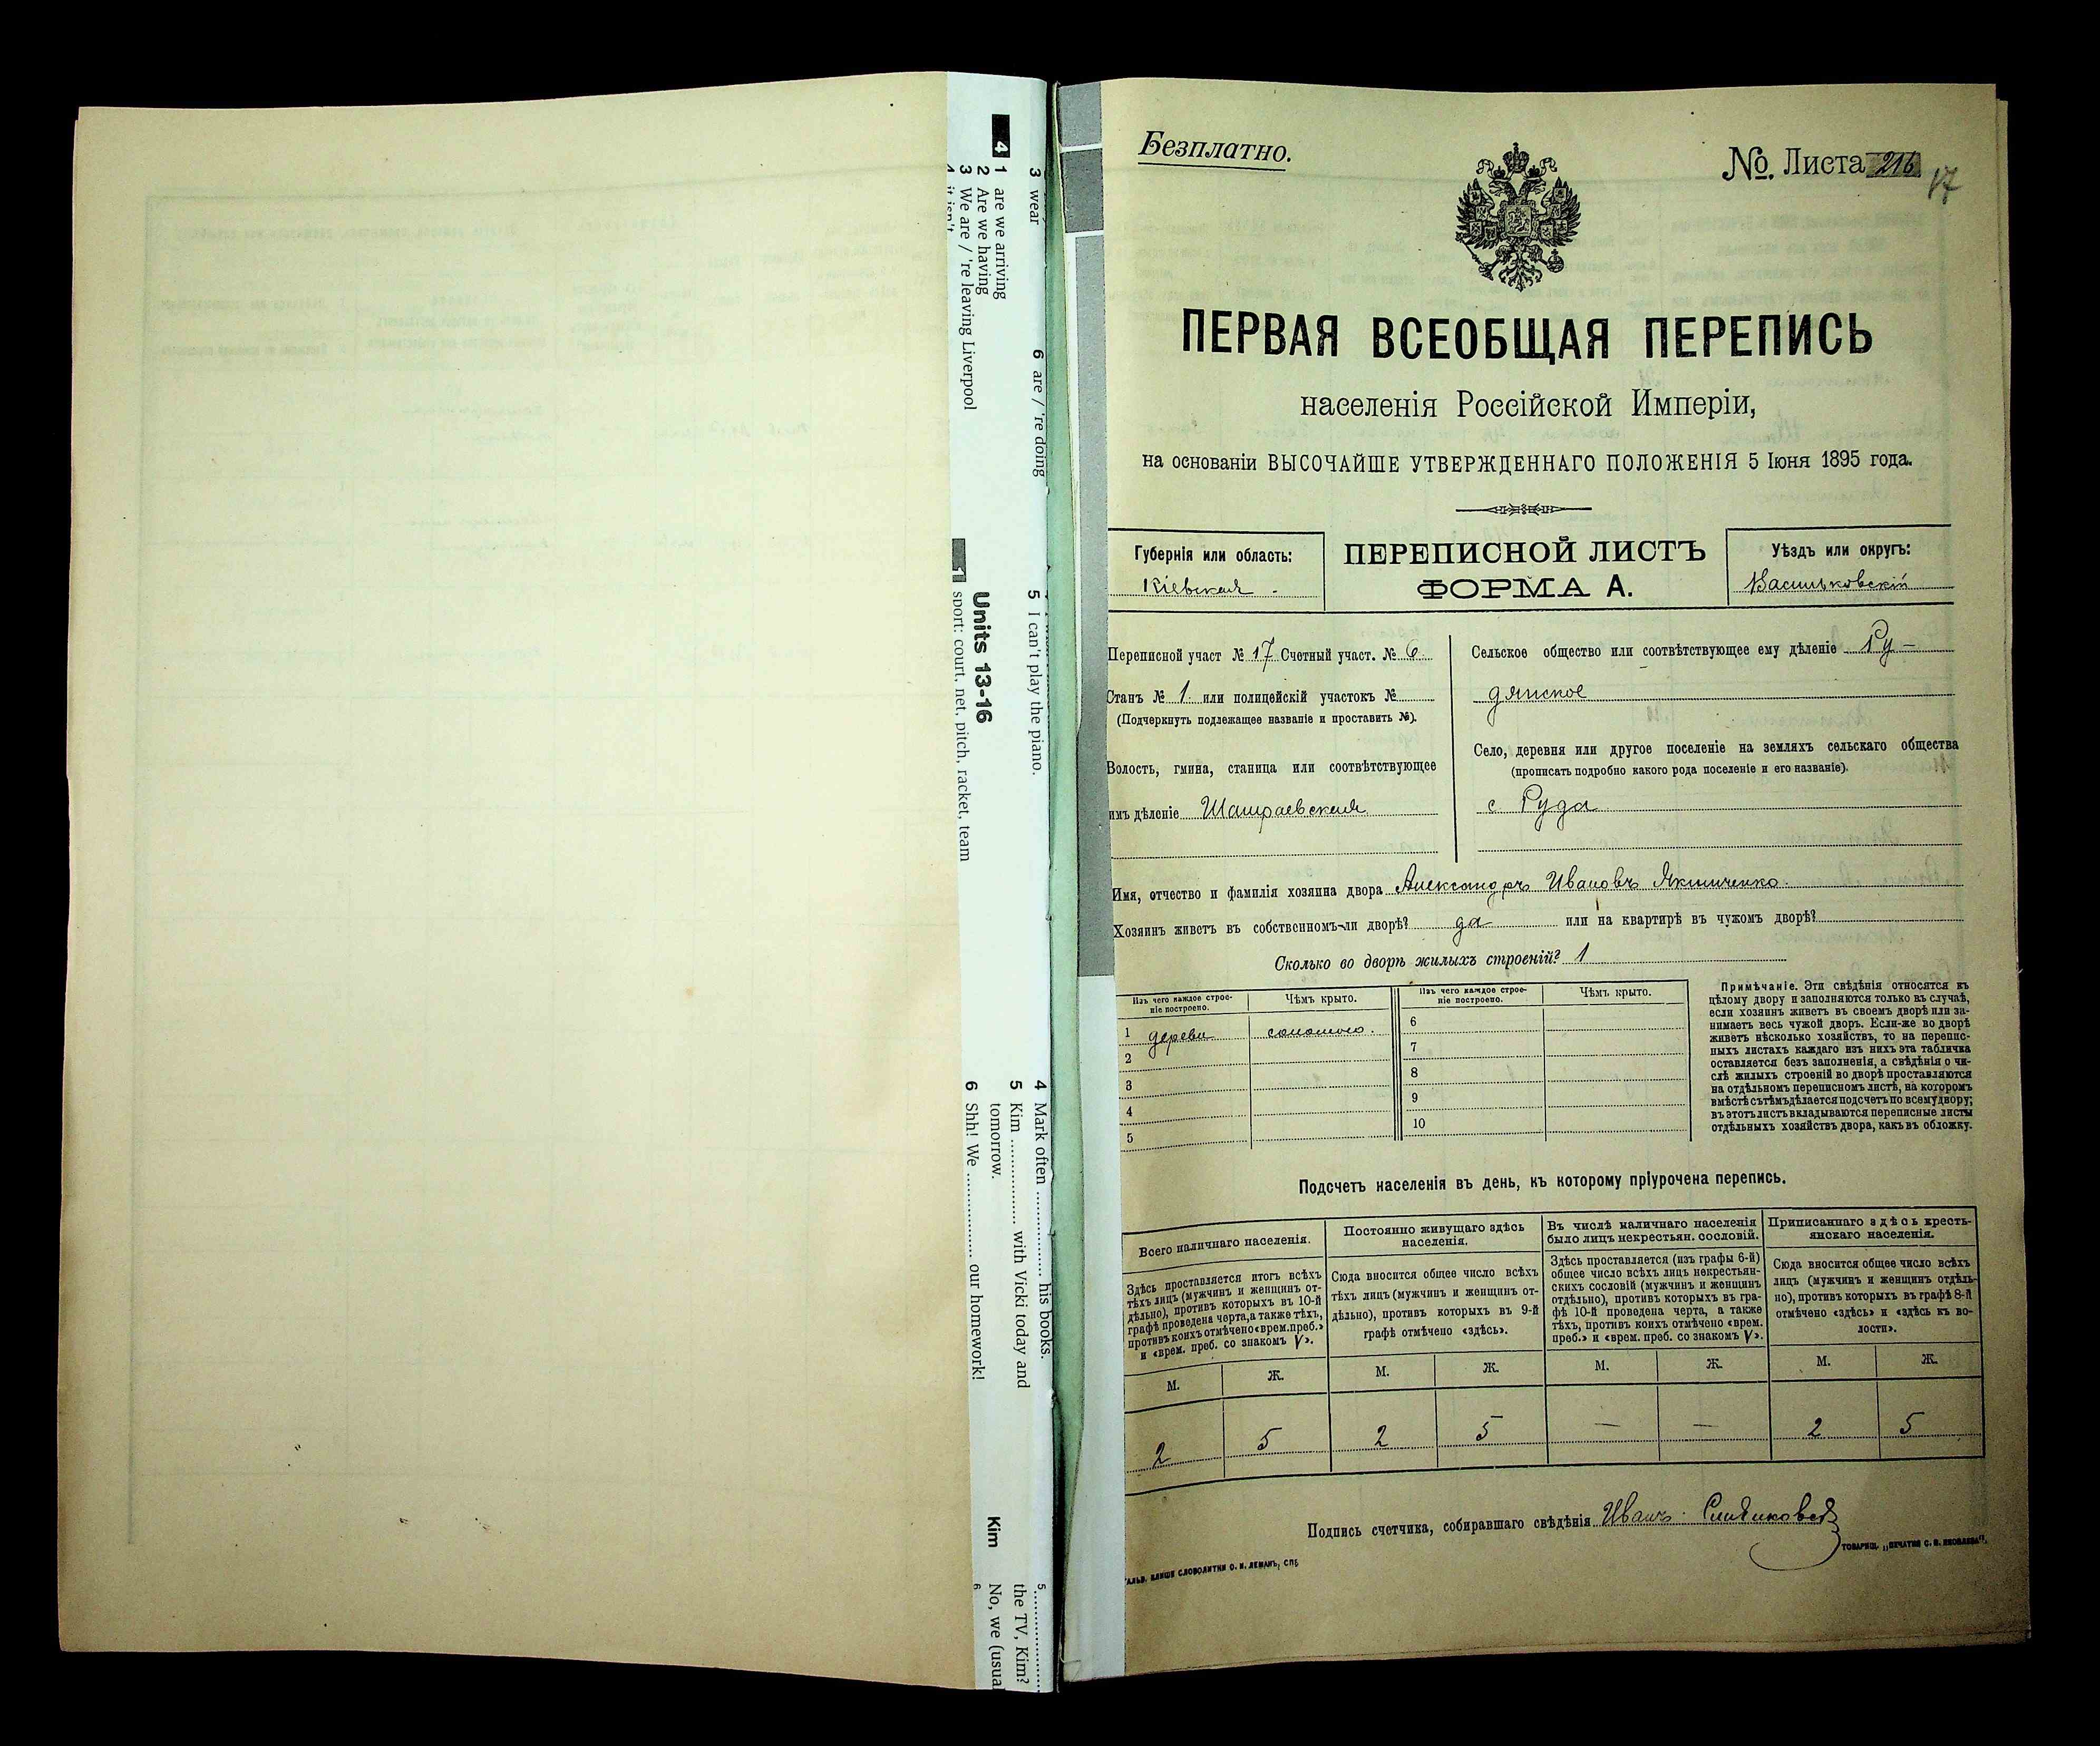 3 wear
6 are / 're doing
5 I can't play the piano.
4 Mark often .................. his books.
4
1 are we arriving
2 Are we having
3 We are / 're leaving Liverpool
4 it isn't
Units 13-16
1 sport: court, net, pitch, racket, team
5 Kim ............... with Vicki today and
tomorrow.
6 Shh! We ................ our homework!
5
the TV, Kim?
Kim No, we (usual
6
Безплатно.
№. Листа 216
17
ПЕРВАЯ ВСЕОБЩАЯ ПЕРЕПИСЬ
населенія Россійской Имперіи,
на основаніи ВЫСОЧАЙШЕ УТВЕРЖДЕННАГО ПОЛОЖЕНІЯ 5 Іюня 1895 года.
Губернія или область:
Кіевская
ПЕРЕПИСНОЙ ЛИСТЪ
ФОРМА А.
Уѣздъ или округъ:
Васильковскій
Переписной участ № 17 Счетный участ. № 6
Станъ № 1 или полицейскій участокъ №
(Подчеркнуть подлежащее названіе и проставить №).
Волость, гмина, станица или соотвѣтствующее
имъ дѣленіе Шамраевская
Сельское общество или соотвѣтствующее ему дѣленіе Ру-
дянское
Село, деревня или другое поселеніе на земляхъ сельскаго общества
(прописать подробно какого рода поселеніе и его названіе).
с Руда
Имя, отчество и фамилія хозяина двора Александръ Ивановъ Якимченко
Хозяинъ живетъ въ собственномъ-ли дворѣ? да или на квартирѣ въ чужомъ дворѣ?
Сколько во дворѣ жилыхъ строеній? 1
Изъ чего каждое строе-
ніе построено.
Чѣмъ крыто.
Изъ чего каждое строе-
ніе построено.
Чѣмъ крыто.
1 дерева соломою.
2
3
4
5
6
7
8
9
10
Примѣчаніе. Эти свѣдѣнія относятся къ
цѣлому двору и заполняются только въ случаѣ,
если хозяинъ живетъ въ своемъ дворѣ или за-
нимаетъ весь чужой дворъ. Если-же во дворѣ
живетъ нѣсколько хозяйствъ, то на перепис-
ныхъ листахъ каждаго изъ нихъ эта табличка
оставляется безъ заполненія, а свѣдѣнія о чи-
слѣ жилыхъ строеній во дворѣ проставляются
на отдѣльномъ переписномъ листѣ, на которомъ
вмѣстѣ съ тѣмъ дѣлается подсчетъ по всему двору;
въ этотъ листъ вкладываются переписные листы
отдѣльныхъ хозяйствъ двора, какъ въ обложку.
Подсчетъ населенія въ день, къ которому пріурочена перепись.
Всего наличнаго населенія.
Здѣсь проставляется итогъ всѣхъ
тѣхъ лицъ (мужчинъ и женщинъ от-
дѣльно), противъ которыхъ въ 10-й
графѣ проведена черта, а также тѣхъ,
противъ коихъ отмѣчено «врем. преб.»
и «врем. преб. со знакомъ V».
Постоянно живущаго здѣсь
населенія.
Сюда вносится общее число всѣхъ
тѣхъ лицъ (мужчинъ и женщинъ от-
дѣльно), противъ которыхъ въ 9-й
графѣ отмѣчено «здѣсь».
Въ числѣ наличнаго населенія
было лицъ некрестьян. сословій.
Здѣсь проставляется (изъ графы 6-й)
общее число всѣхъ лицъ некрестьян-
скихъ сословій (мужчинъ и женщинъ
отдѣльно), противъ которыхъ въ гра-
фѣ 10-й проведена черта, а также
тѣхъ, противъ коихъ отмѣчено «врем.
преб.» и «врем. преб. со знакомъ V».
Приписаннаго здѣсь кресть-
янскаго населенія.
Сюда вносится общее число всѣхъ
лицъ (мужчинъ и женщинъ отдѣль-
но), противъ которыхъ въ графѣ 8-й
отмѣчено «здѣсь» и «здѣсь къ во-
лости».
М. Ж. М. Ж. М. Ж. М. Ж.
2 5 2 5 — — 2 5
Подпись счетчика, собиравшаго свѣдѣнія Иванъ
КЛИШЕ СЛОВОЛИТНИ О. И. ЛЕМАНЪ, СПБ
ТОВАРИЩ. „ПЕЧАТНЯ С. П. ЯКОВЛЕВА".